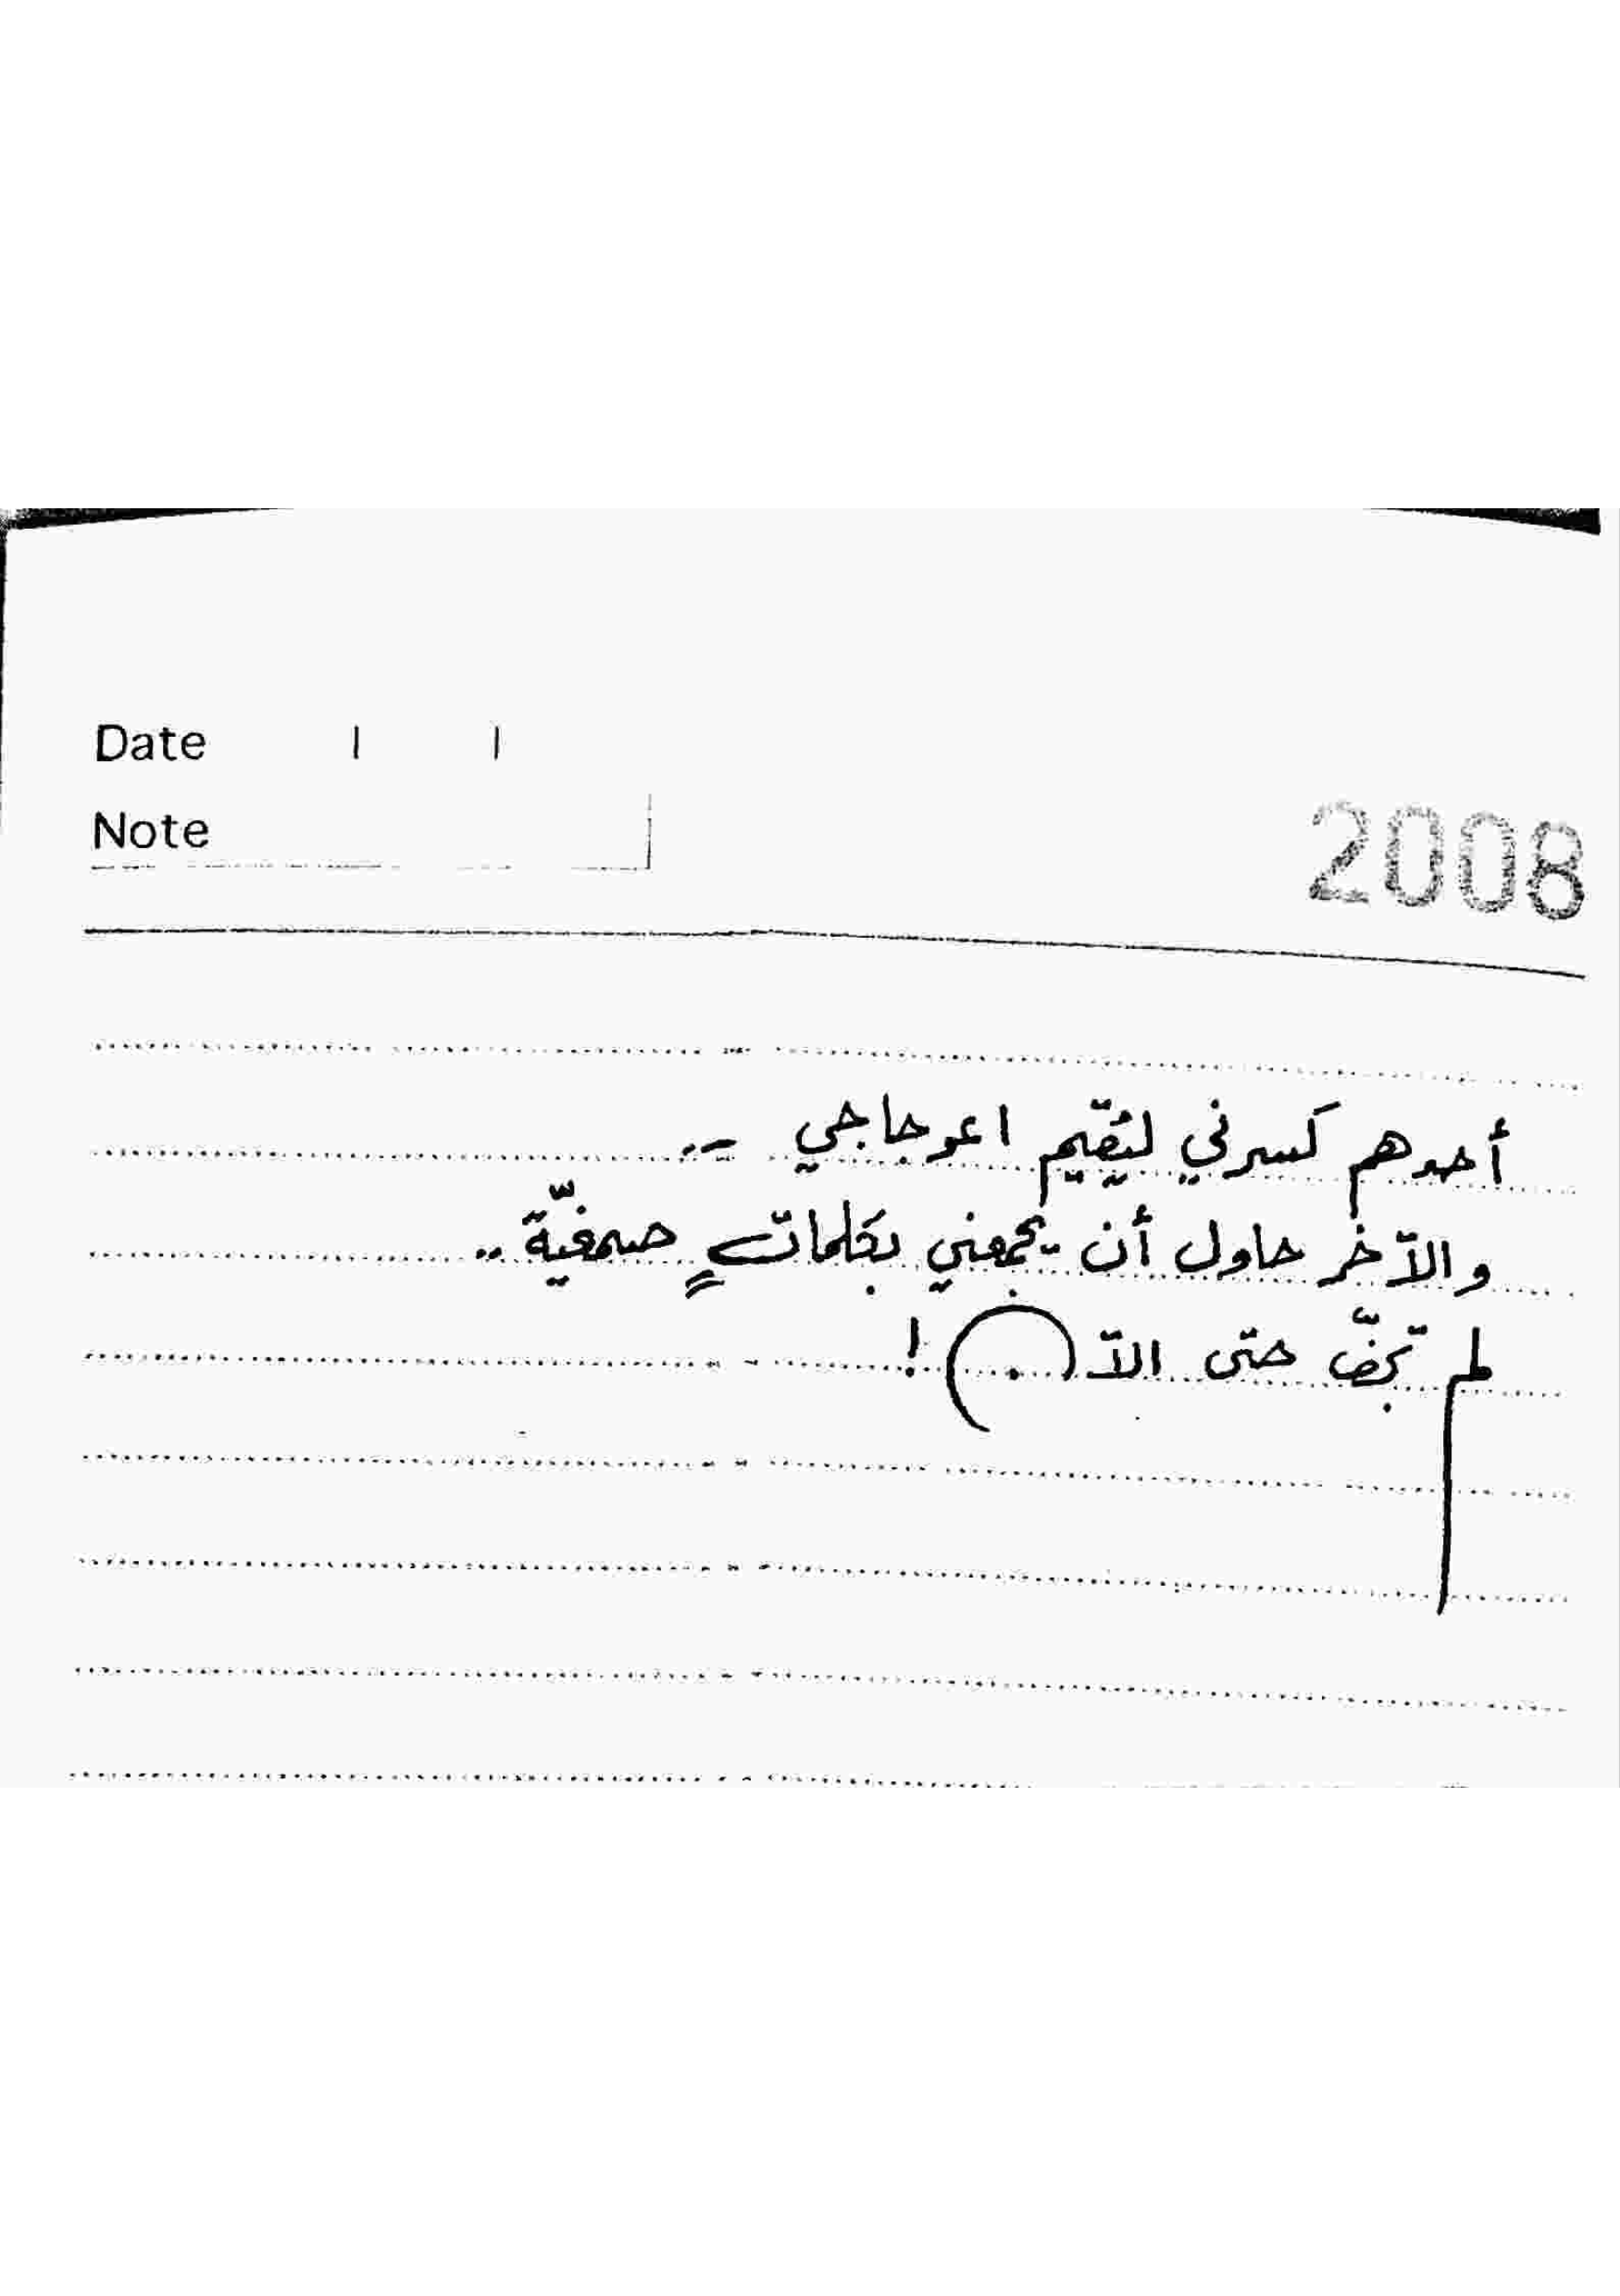 Date / /
Note
2008
أحدهم كسرني ليُقيّم اعوجاجي ..
والآخر حاول أن يجمعني بكلماتٍ صمغيّة ..
لم تجفّ حتى الآن !